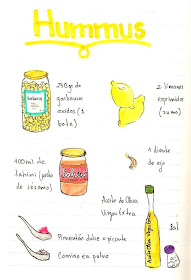 Hummus
250gr de
garbanzos
cocidos (1
bote)
2 limones
exprimidos
(zumo)
100ml de
tahini (pasta
de sesamo)
1 diente
de ajo
Aceite de Oliva
Virgen Extra
Sal
Pimentón dulce o picante
Comino en polvo